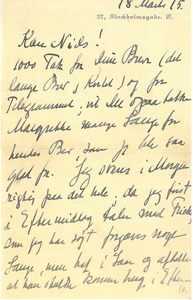 18 Marts 15.
27, Stockholmsgade. Ø.
Kære Niels!
1000 Tak for Dit Brev (det
lange Brev, Kort) og for
Telegrammet; vil De ogsaa takke
Margrethe mange Gange for
hendes Brev, som jeg blev saa
glad for. Jeg svarer i Morgen
rigtig paa det hele, da jeg først
i Eftermiddag taler med
som jeg har søgt forgæves nogle
Gange, men
han skulde komme i Efter